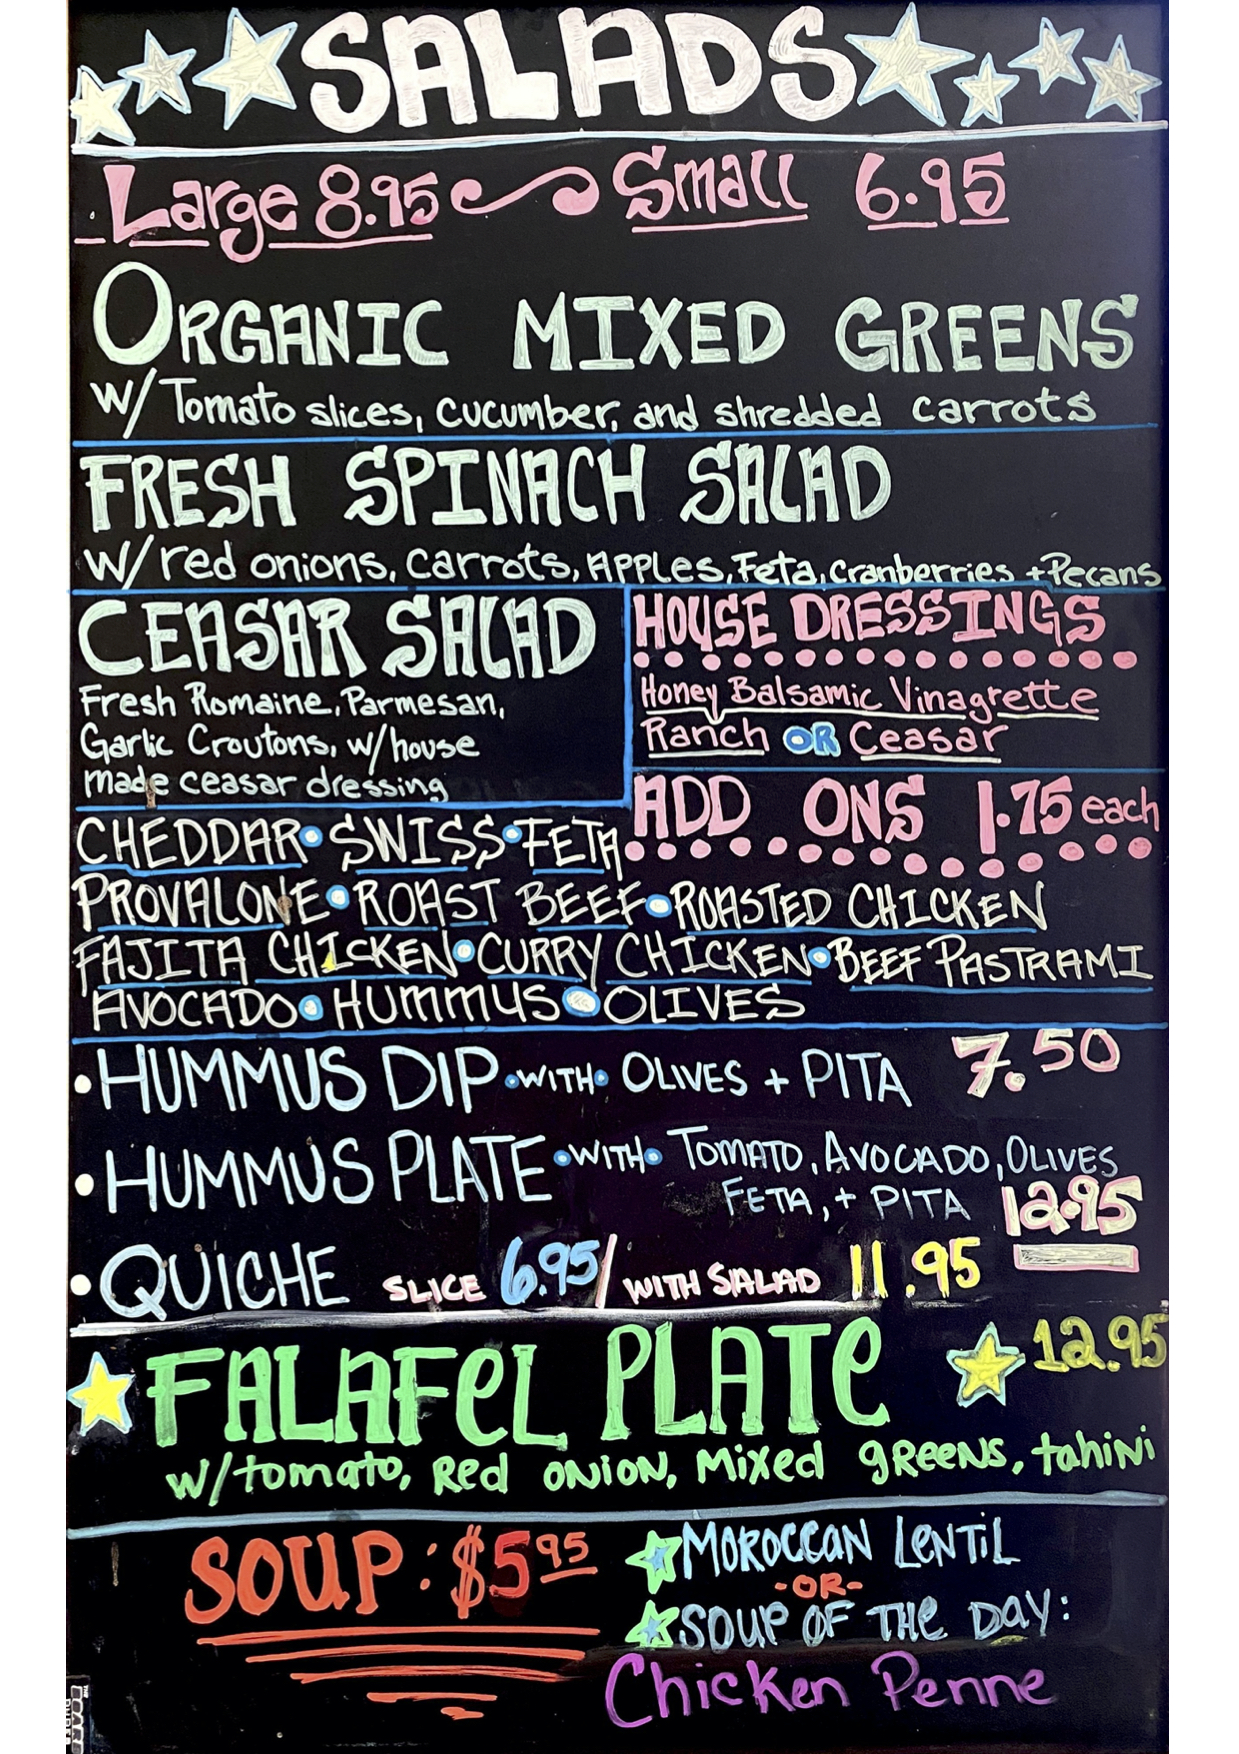 SALADS
Large 8.95 Small 6.95
ORGANIC MIXED GREENS
w/ Tomato slices, cucumber, and shredded carrots
FRESH SPINACH SALAD
w/ red onions, carrots, APPLES, Feta, cranberries + Pecans
CEASAR SALAD
Fresh Romaine, Parmesan,
Garlic Croutons, w/house
made ceasar dressing
HOUSE DRESSINGS
Honey Balsamic Vinagrette
Ranch OR Ceasar
ADD ONS 1.75 each
CHEDDAR • SWISS • FETA
PROVALONE • ROAST BEEF • ROASTED CHICKEN
FAJITA CHICKEN • CURRY CHICKEN • BEEF PASTRAMI
AVOCADO • HUMMUS • OLIVES
• HUMMUS DIP • WITH • OLIVES + PITA 7.50
• HUMMUS PLATE • WITH • TOMATO, AVOCADO, OLIVES
FETA, + PITA 12.95
• QUICHE SLICE 6.95/ WITH SALAD 11.95
FALAFEL PLATE 12.95
w/tomato, Red ONION, Mixed gReeNs, tahiNi
SOUP: $5.95
MOROCCAN LENTIL
-OR-
SOUP OF THE DAY:
Chicken Penne